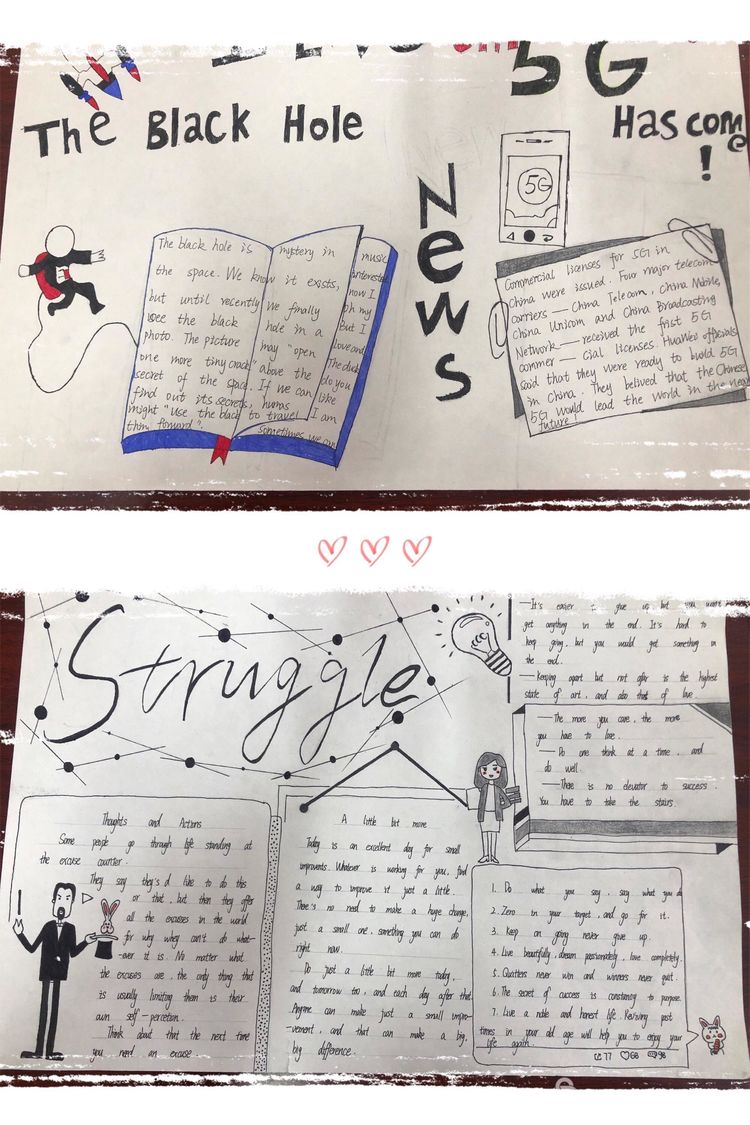 5G
The Black Hole
Has come
!
News
5G
The black hole is mystery in
the space. We know it exists,
but until recently we finally
see the black hole in a
photo. The picture may "open
one more tiny crack" above the
secret of the space. If we can
find out its secrets, humas
might "use the black to travel
thim forward".
music
interested
now I
oh my
But I
love and
The duck
do you
like
I am
sometimes we can
Commercial licenses for 5G in
China were issued. Four major telecom
carriers — China Telecom, China Mobile,
China Unicom and China Broadcasting
Network — received the first 5G
commer — cial licenses HuaWei officials
said that they were ready to build 5G
in China. They belived that the Chinese
5G would lead the world in the near
future!
Struggle
—It's easier to give up, but you won't
get anything in the end. It's hard to
keep going, but you would get something in
the end.
—Keeping apart but not afar is the highest
state of art, and also that of love.
—The more you care, the more
you have to lose.
—Do one think at a time, and
do well.
—There is no elevator to success.
You have to take the stairs.
Thoughts and Actions
Some people go through life standing at
the excuse counter.
They say they's d like to do this
or that, but then they offer
all the excuses in the world
for why whey can't do what-
-over it is. No matter what
the excuses are, the only thing that
is usually limiting them is their
own self-percetion.
Think about that the next time
you need an excuse
A little bit more
Today is an excellent day for small
improvents. Whatever is working for you, find
a way to improve it just a little.
There's no need to make a huge change,
just a small one, something you can do
right now.
Do just a little bit more today,
and tomorrow too, and each day after that.
Anyone can make just a small impro-
-vement, and that can make a big,
big difference.
1. Do what you say, say what you do
2. Zero in your target, and go for it.
3. Keep on going never give up.
4. Live beautifully, dream passionately, love completely.
5. Quitters never win and winners never quit.
6. The secret of success is constancy to purpose.
7. Live a noble and honest life. Reviving past
times in your old age will help you to enjoy your
life again.
77 68 98